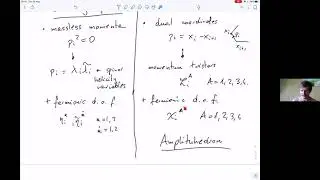 • massless momenta
p_i² = 0
↓
p_i = λ_i λ̃_i ← spinor helicity variables
+ fermionic d.o.f.
• dual coordinates
p_i = x_i - x_{i+1}
x_i
x_{i+1}
↓
momentum twistors
A = 1,2,3,4
+ fermionic d.o.f.
A = 1,2,3,4
Amplituhedron